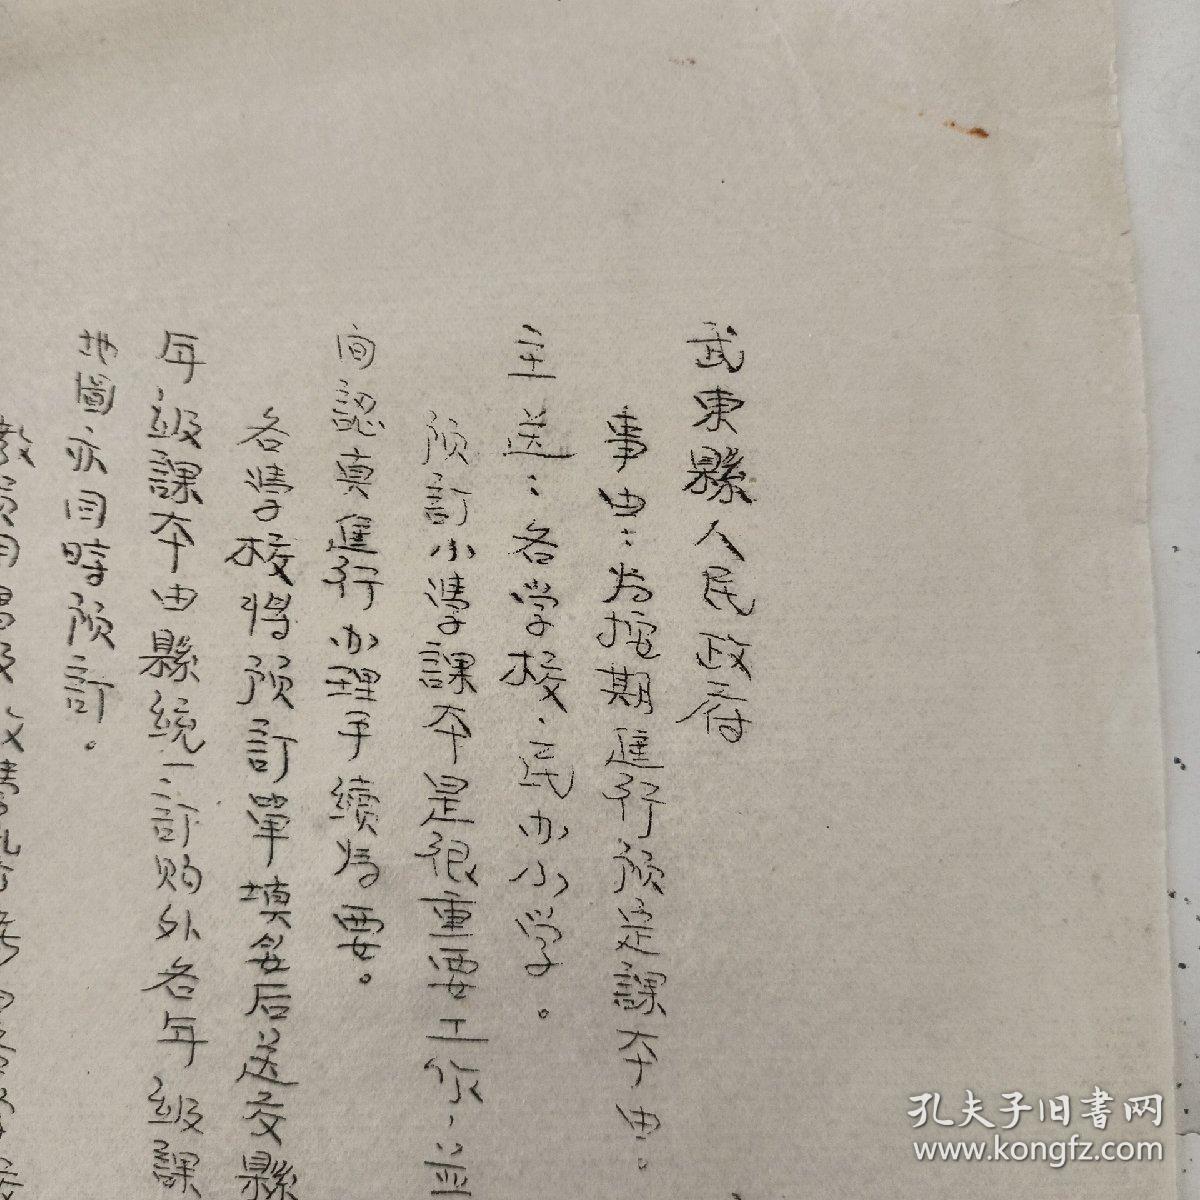 武東縣人民政府
事由：为按期進行预定課本由。
主送：各学校，民办小学。
预訂小學課本是很重要工作，並
向認真進行办理手續為要。
各學校将预訂單填妥后送交縣
年級課本由縣統一訂购外各年級課
地圖亦同時预訂。
孔夫子旧书网
www.kongfz.com